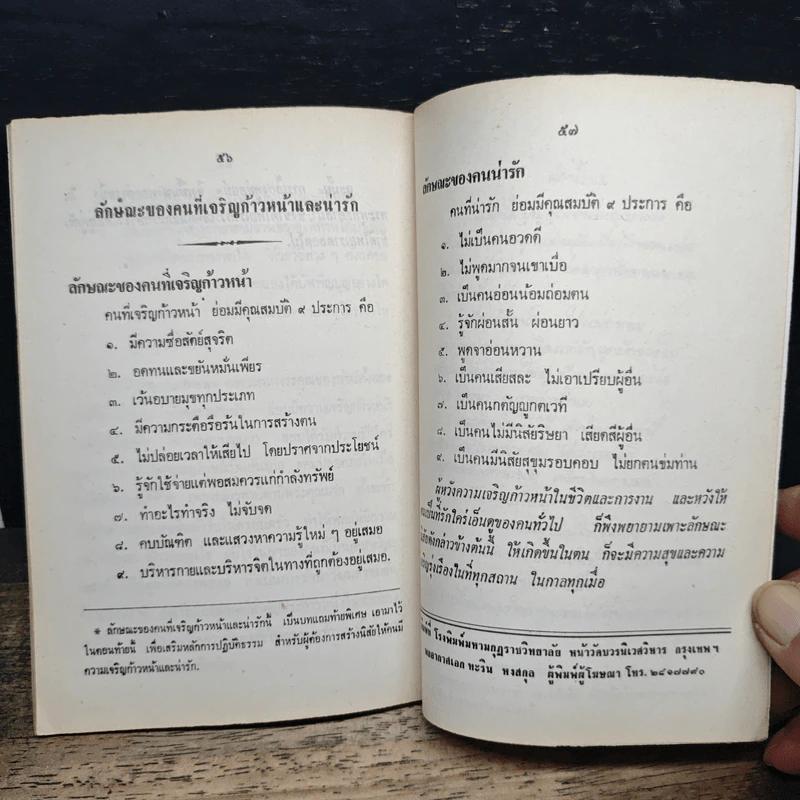 ๕๖
ลักษณะของคนที่เจริญก้าวหน้าและน่ารัก
ลักษณะของคนที่เจริญก้าวหน้า
คนที่เจริญก้าวหน้า ย่อมมีคุณสมบัติ ๙ ประการ คือ
๑. มีความซื่อสัตย์สุจริต
๒. อดทนและขยันหมั่นเพียร
๓. เว้นอบายมุขทุกประเภท
๔. มีความกระตือรือร้นในการสร้างตน
๕. ไม่ปล่อยเวลาให้เสียไป โดยปราศจากประโยชน์
๖. รู้จักใช้จ่ายแต่พอสมควรแก่กำลังทรัพย์
๗. ทำอะไรทำจริง ไม่จับจด
๘. คบบัณฑิต และแสวงหาความรู้ใหม่ ๆ อยู่เสมอ
๙. บริหารกายและบริหารจิตในทางที่ถูกต้องอยู่เสมอ.
* ลักษณะของคนที่เจริญก้าวหน้าและน่ารักนี้ เป็นบทแถมท้ายพิเศษ เอามาไว้
ในตอนท้ายนี้ เพื่อเสริมหลักการปฏิบัติธรรม สำหรับผู้ต้องการสร้างนิสัยให้คนมี
ความเจริญก้าวหน้าและน่ารัก.
๕๗
ลักษณะของคนน่ารัก
คนที่น่ารัก ย่อมมีคุณสมบัติ ๙ ประการ คือ
๑. ไม่เป็นคนอวดดี
๒. ไม่พูดมากจนเขาเบื่อ
๓. เป็นคนอ่อนน้อมถ่อมตน
๔. รู้จักผ่อนสั้น ผ่อนยาว
๕. พูดจาอ่อนหวาน
๖. เป็นคนเสียสละ ไม่เอาเปรียบผู้อื่น
๗. เป็นคนกตัญญูกตเวที
๘. เป็นคนไม่มีนิสัยริษยา เสียดสีผู้อื่น
๙. เป็นคนมีนิสัยสุขุมรอบคอบ ไม่ยกตนข่มท่าน
ผู้หวังความเจริญก้าวหน้าในชีวิตและการงาน และหวังให้
เป็นที่รักใคร่เอ็นดูของคนทั่วไป ก็พึงพยายามเพาะลักษณะ
ดังกล่าวข้างต้นนี้ ให้เกิดขึ้นในตน ก็จะมีความสุขและความ
รุ่งเรืองในที่ทุกสถาน ในกาลทุกเมื่อ
โรงพิมพ์มหามกุฏราชวิทยาลัย หน้าวัดบวรนิเวศวิหาร กรุงเทพ ฯ
หงสกุล ผู้พิมพ์ผู้โฆษณา โทร. ๒๘๑๗๗๙๐